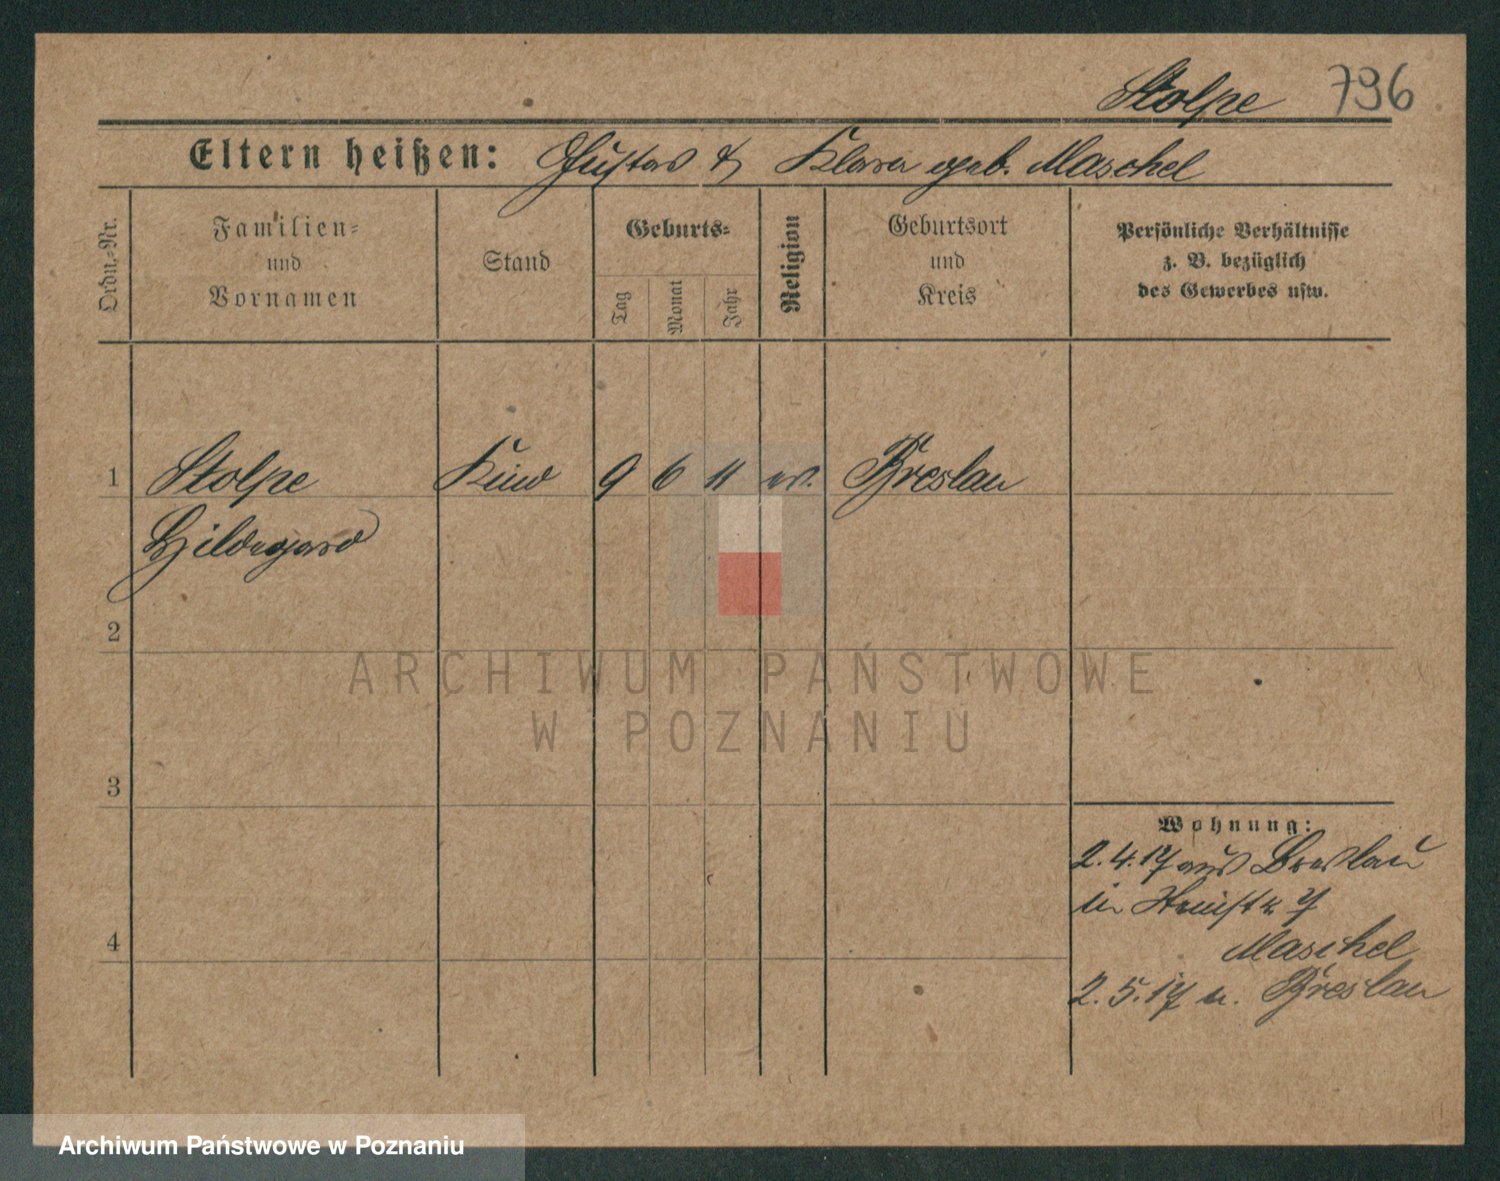 Stolpe 796
Eltern heißen: Gustav & Klara geb. Maschel
Ordn.-Nr.
Familien-
und
Vornamen
Stand
Geburts-
Tag
Monat
Jahr
Religion
Geburtsort
und
Kreis
Persönliche Verhältnisse
z. B. bezüglich
des Gewerbes usw.
1 Stolpe Kind 9 6 11 ev. Breslau
Hildegard
2
3
4
Wohnung:
2.4.17 aus Breslau
in 7
Maschel
2.5.17 n. Breslau
ARCHIWUM PAŃSTWOWE
W POZNANIU
Archiwum Państwowe w Poznaniu